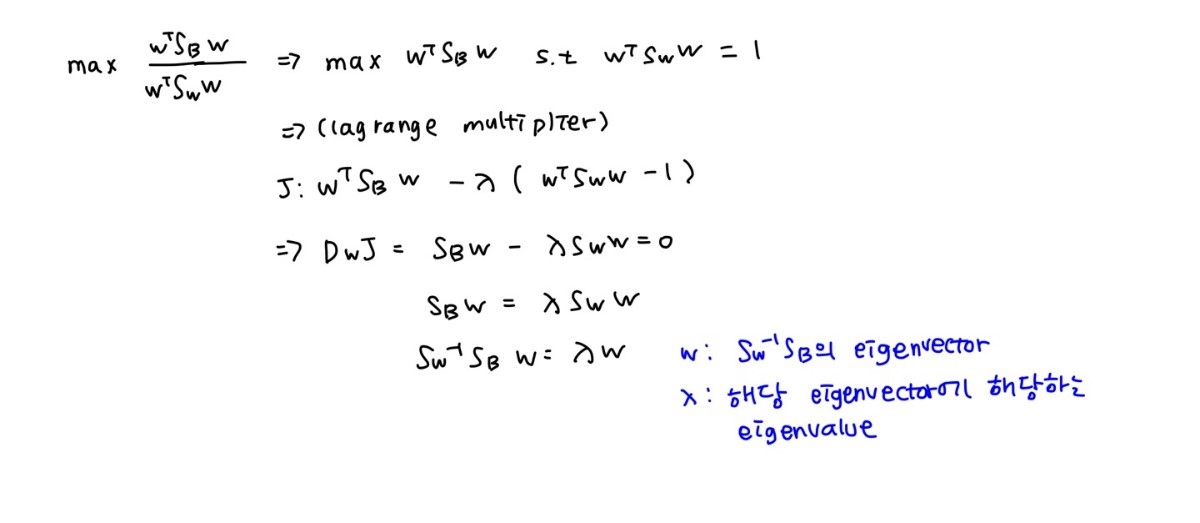 max wᵀS_B w / wᵀS_w w => max wᵀS_B w s.t wᵀS_w w = 1
=> (lagrange multiplier)
J: wᵀS_B w - λ ( wᵀS_w w - 1 )
=> D_w J = S_B w - λ S_w w = 0
S_B w = λ S_w w
S_w⁻¹ S_B w = λ w w: S_w⁻¹S_B의 eigenvector
λ: 해당 eigenvector에 해당하는
eigenvalue